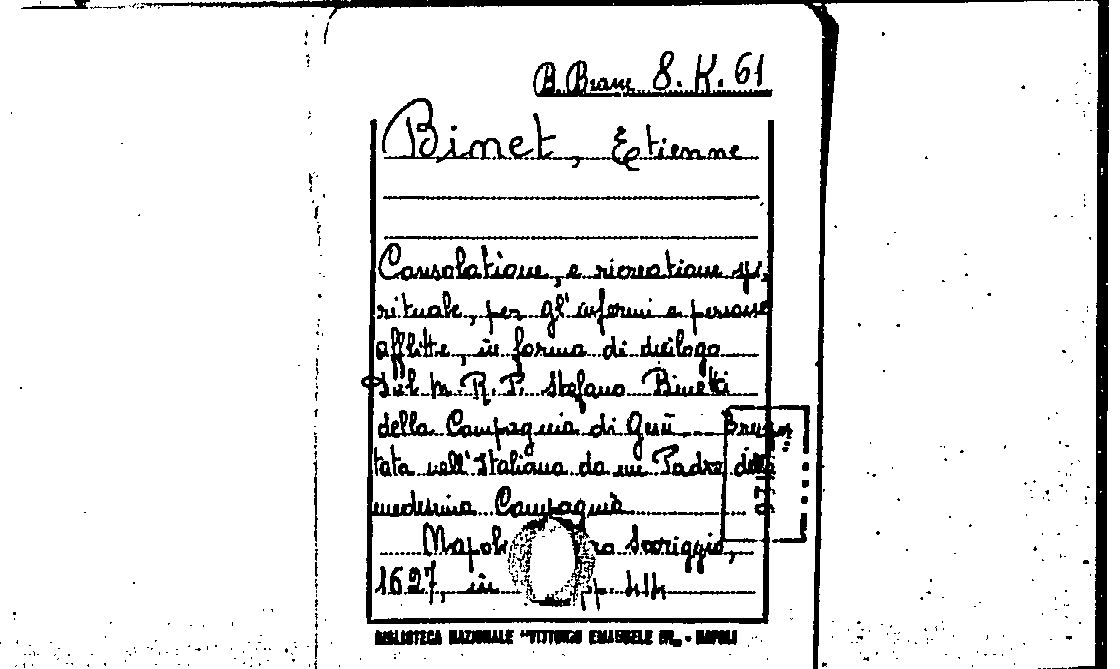 B. Branc. 8. K. 61
Binet, Etienne
Consolatione, e ricreatione spi,
rituale, per gl'infermi e persone
afflitte, in forma di dialogo
Del M. R. P. Stefano Binetti
della Compagnia di Gesù
tata nell'Italiana da un Padre della
medesima Compagnia
Napoli Scoriggio,
1627, in pp.
BIBLIOTECA NAZIONALE "VITTORIO EMANUELE III" - NAPOLI